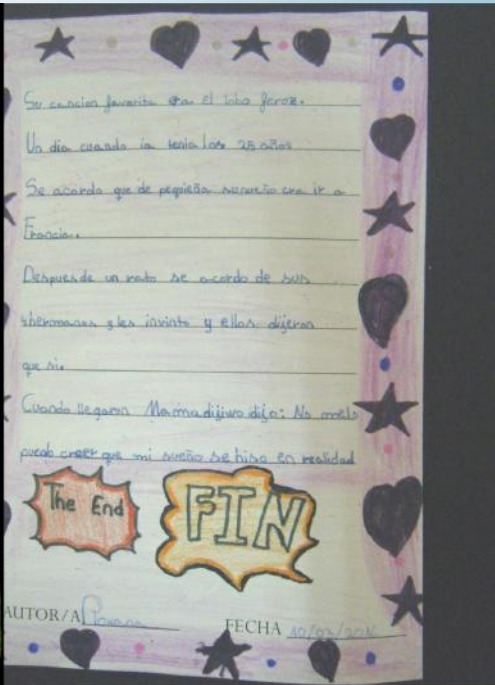 Su cancion favorita era el lobo feroz.
Un dia cuando ia tenia los 25 años
Se acordo que de pequeña su sueño era ir a
Francia.
Despues de un rato se acordo de sus
hermanas y les invinto y ellos dijeron
que si.
Cuando llegaron Mama dijo: No melo
puedo creer que mi sueño se hiso en realidad
The End
FIN
AUTOR/A
FECHA 10/02/